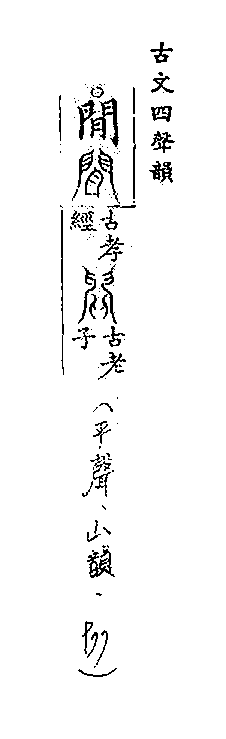 古文四聲韻
閒 古孝經 古老子 (平聲、山韻、)